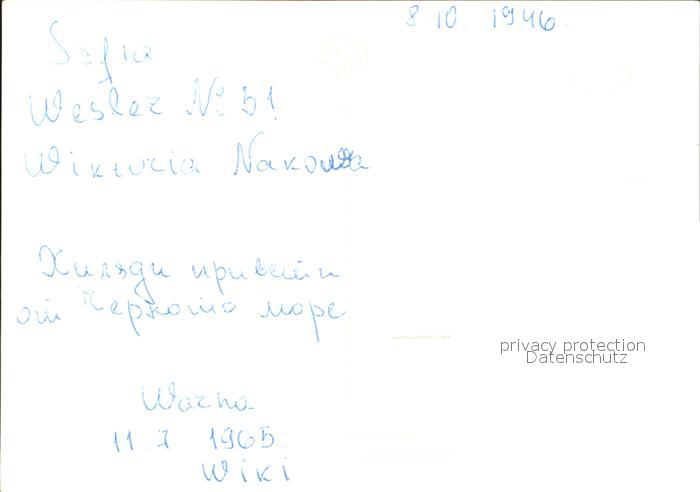 8.10. 1946.
Sofia
Weslez № 51
Wiktoria Nakowa
Хиляди привети
от Черното море
Warna
11. 7 1965.
Wiki
privacy protection
Datenschutz